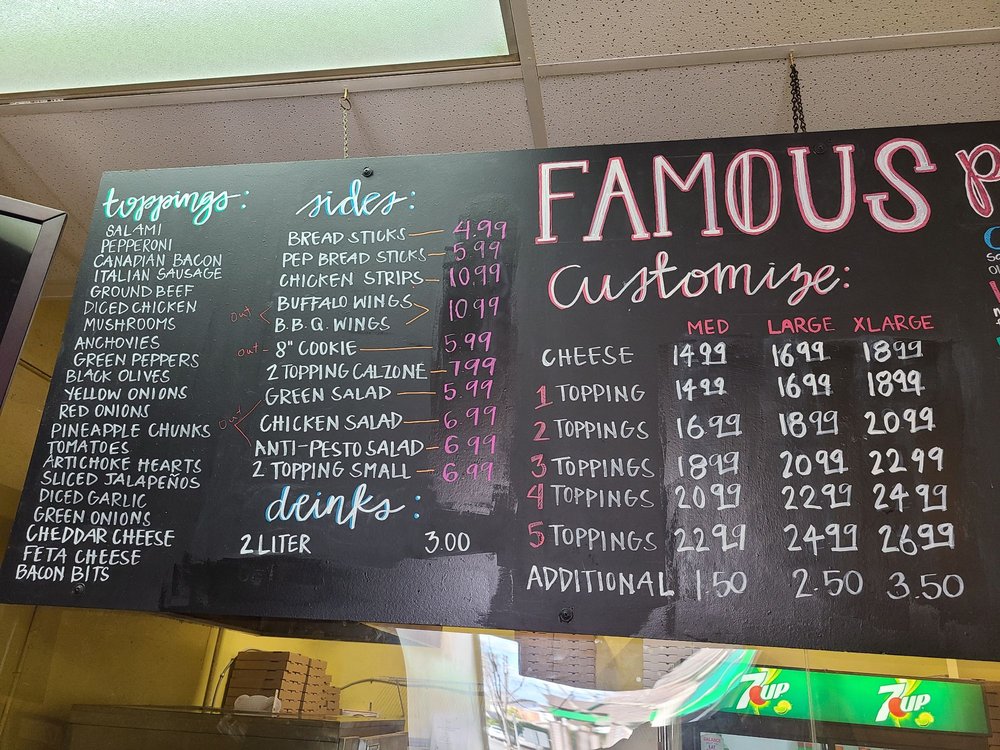 toppings:
SALAMI
PEPPERONI
CANADIAN BACON
ITALIAN SAUSAGE
GROUND BEEF
DICED CHICKEN
MUSHROOMS
ANCHOVIES
GREEN PEPPERS
BLACK OLIVES
YELLOW ONIONS
RED ONIONS
PINEAPPLE CHUNKS
TOMATOES
ARTICHOKE HEARTS
SLICED JALAPEÑOS
DICED GARLIC
GREEN ONIONS
CHEDDAR CHEESE
FETA CHEESE
BACON BITS
sides:
BREAD STICKS — 4.99
PEP BREAD STICKS — 5.99
CHICKEN STRIPS — 10.99
BUFFALO WINGS
out 10.99
B.B.Q. WINGS
out - 8" COOKIE — 5.99
2 TOPPING CALZONE — 7.99
GREEN SALAD — 5.99
out CHICKEN SALAD — 6.99
ANTI-PESTO SALAD — 6.99
2 TOPPING SMALL — 6.99
drinks:
2 LITER 3.00
FAMOUS
Customize:
MED LARGE XLARGE
CHEESE 14.99 16.99 18.99
1 TOPPING 14.99 16.99 18.99
2 TOPPINGS 16.99 18.99 20.99
3 TOPPINGS 18.99 20.99 22.99
4 TOPPINGS 20.99 22.99 24.99
5 TOPPINGS 22.99 24.99 26.99
ADDITIONAL 1.50 2.50 3.50
7UP
7UP